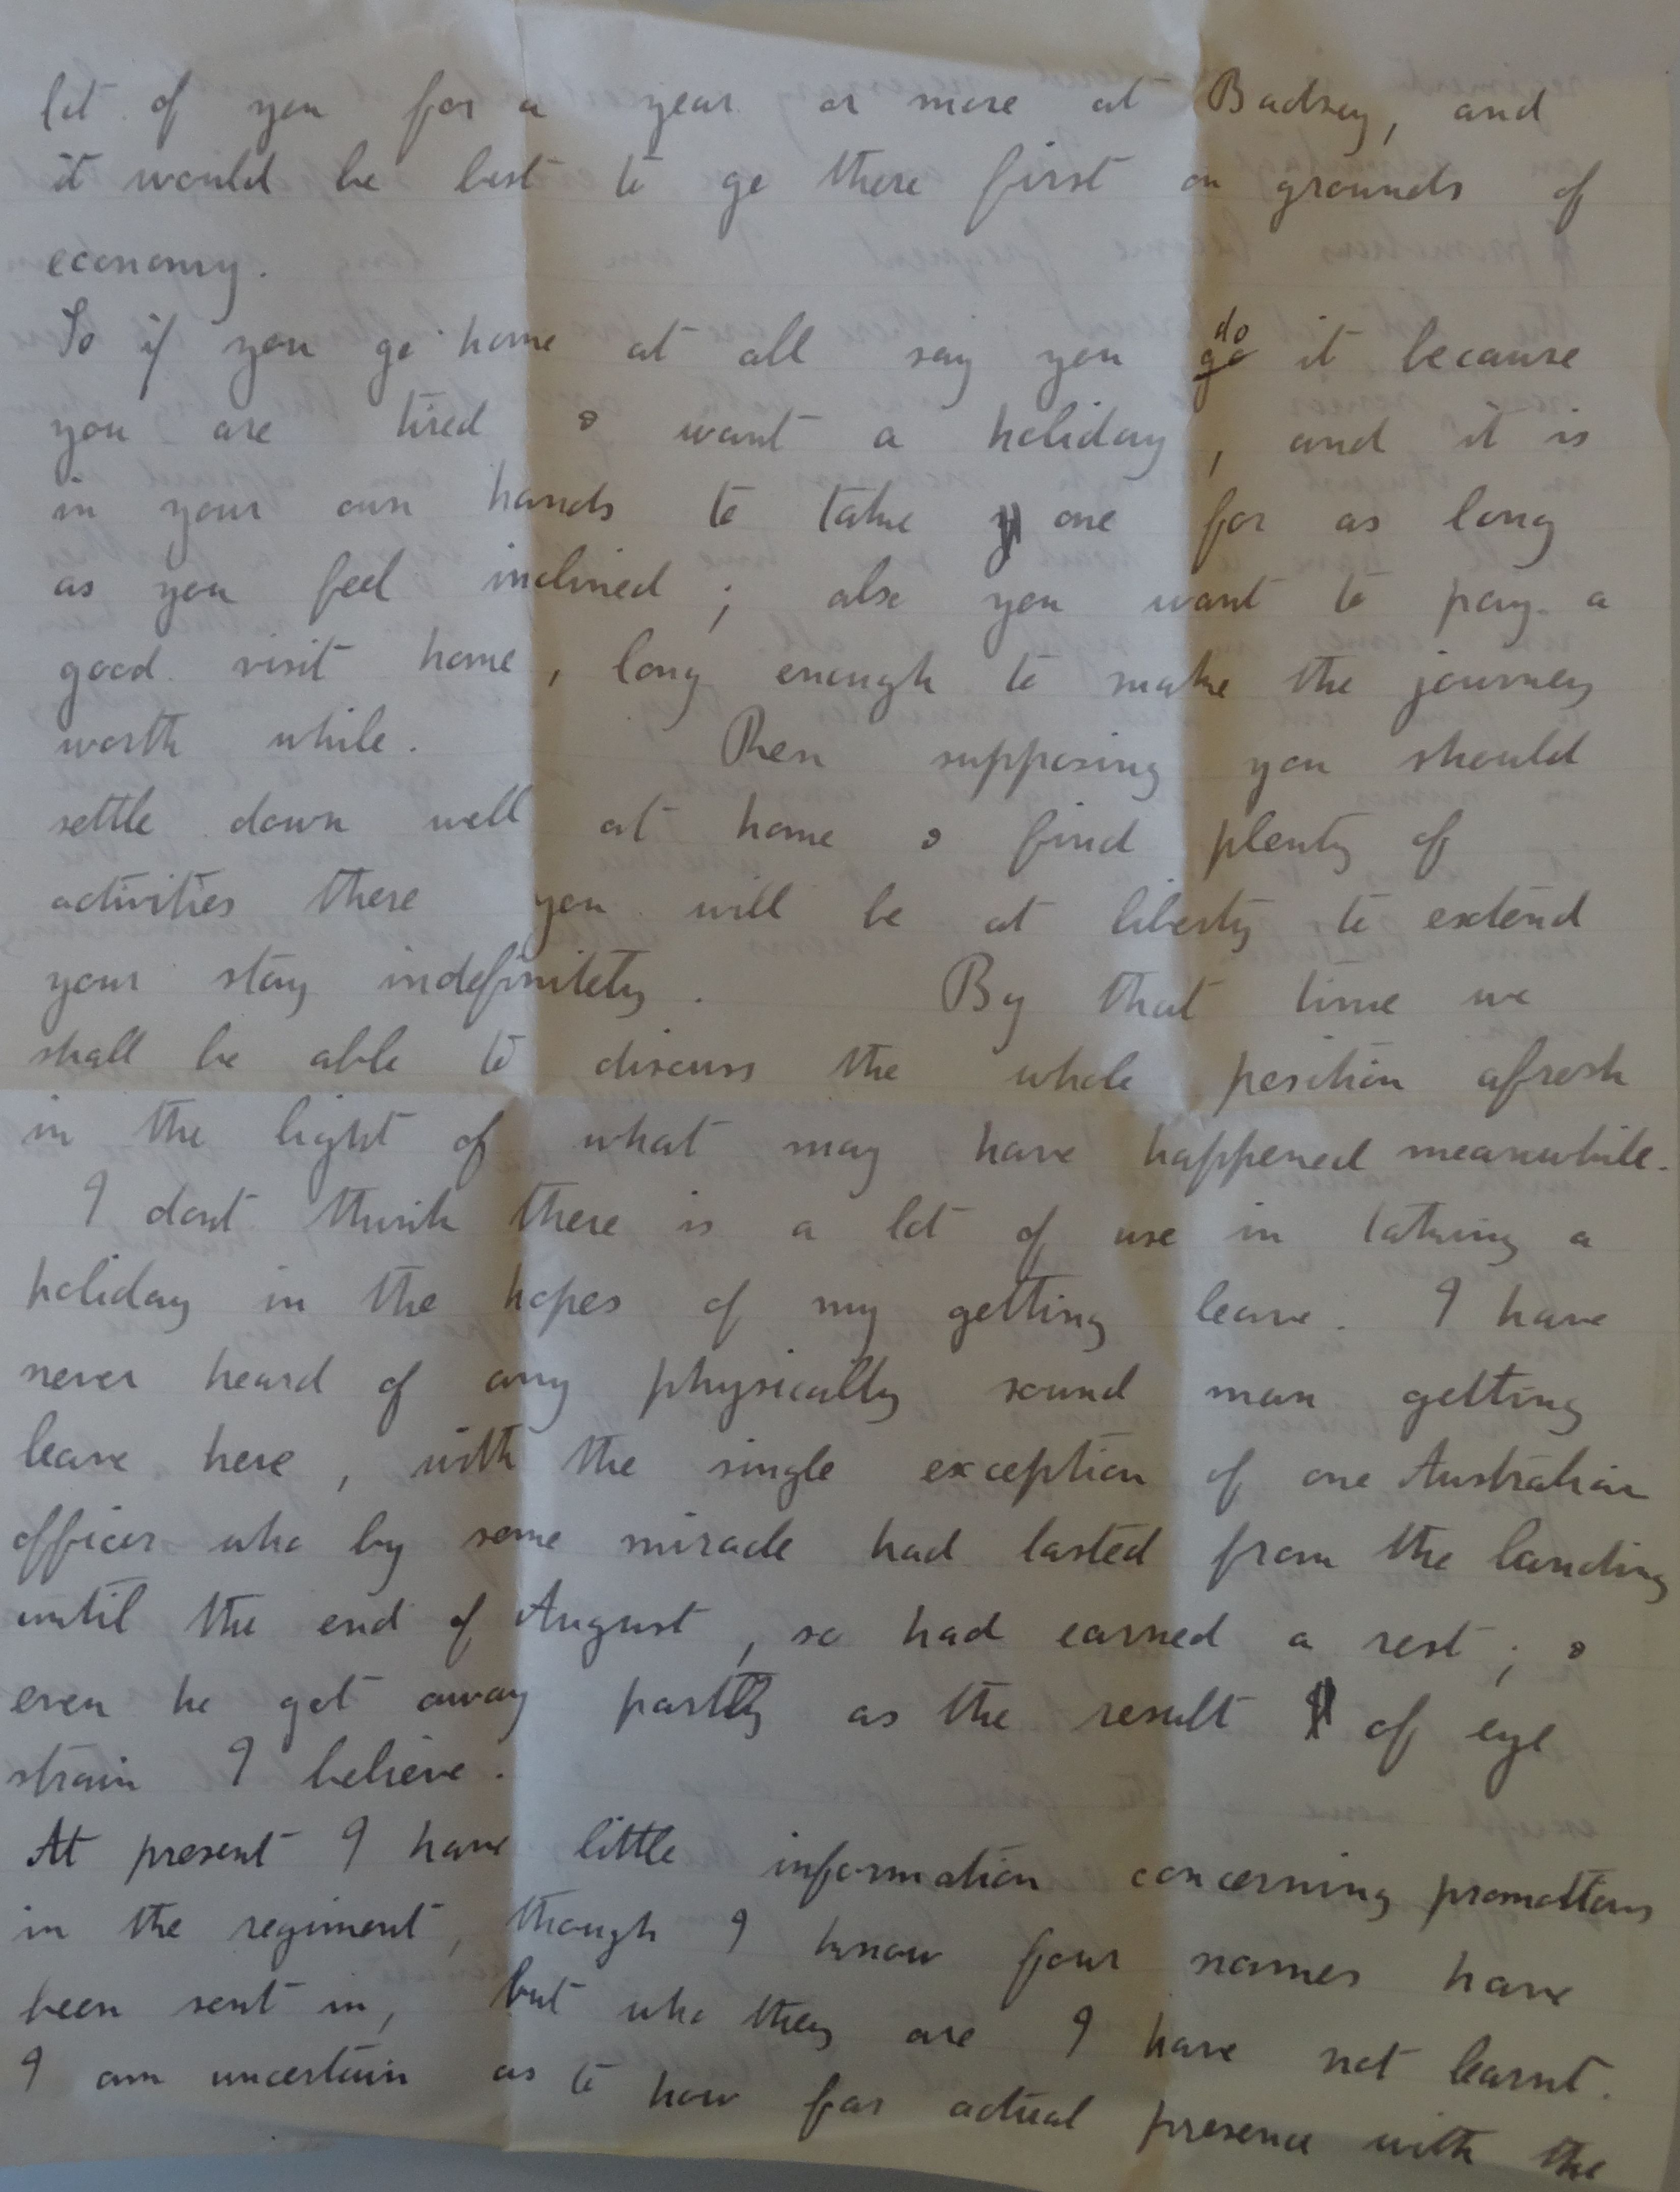 lot of you for a year or more at Badsey, and
it would be best to go there first on grounds of
economy.
So if you go home at all say you do it because
you are tired & want a holiday, and it is
in your own hands to take one for as long
as you feel inclined; also you want to pay a
good visit home, long enough to make the journey
worth while. Then supposing you should
settle down well at home & find plenty of
activities there you will be at liberty to extend
your stay indefinitely. By that time we
shall be able to discuss the whole position afresh
in the light of what may have happened meanwhile.
I dont think there is a lot of use in taking a
holiday in the hopes of my getting leave. I have
never heard of any physically sound man getting
leave here, with the single exception of one Australian
officer who by some miracle had lasted from the landing
until the end of August, so had earned a rest; &
even he got away partly as the result of eye
strain I believe.
At present I have little information concerning promotions
in the regiment, though I know four names have
been sent in, but who they are I have not learnt.
I am uncertain as to how far actual presence with the